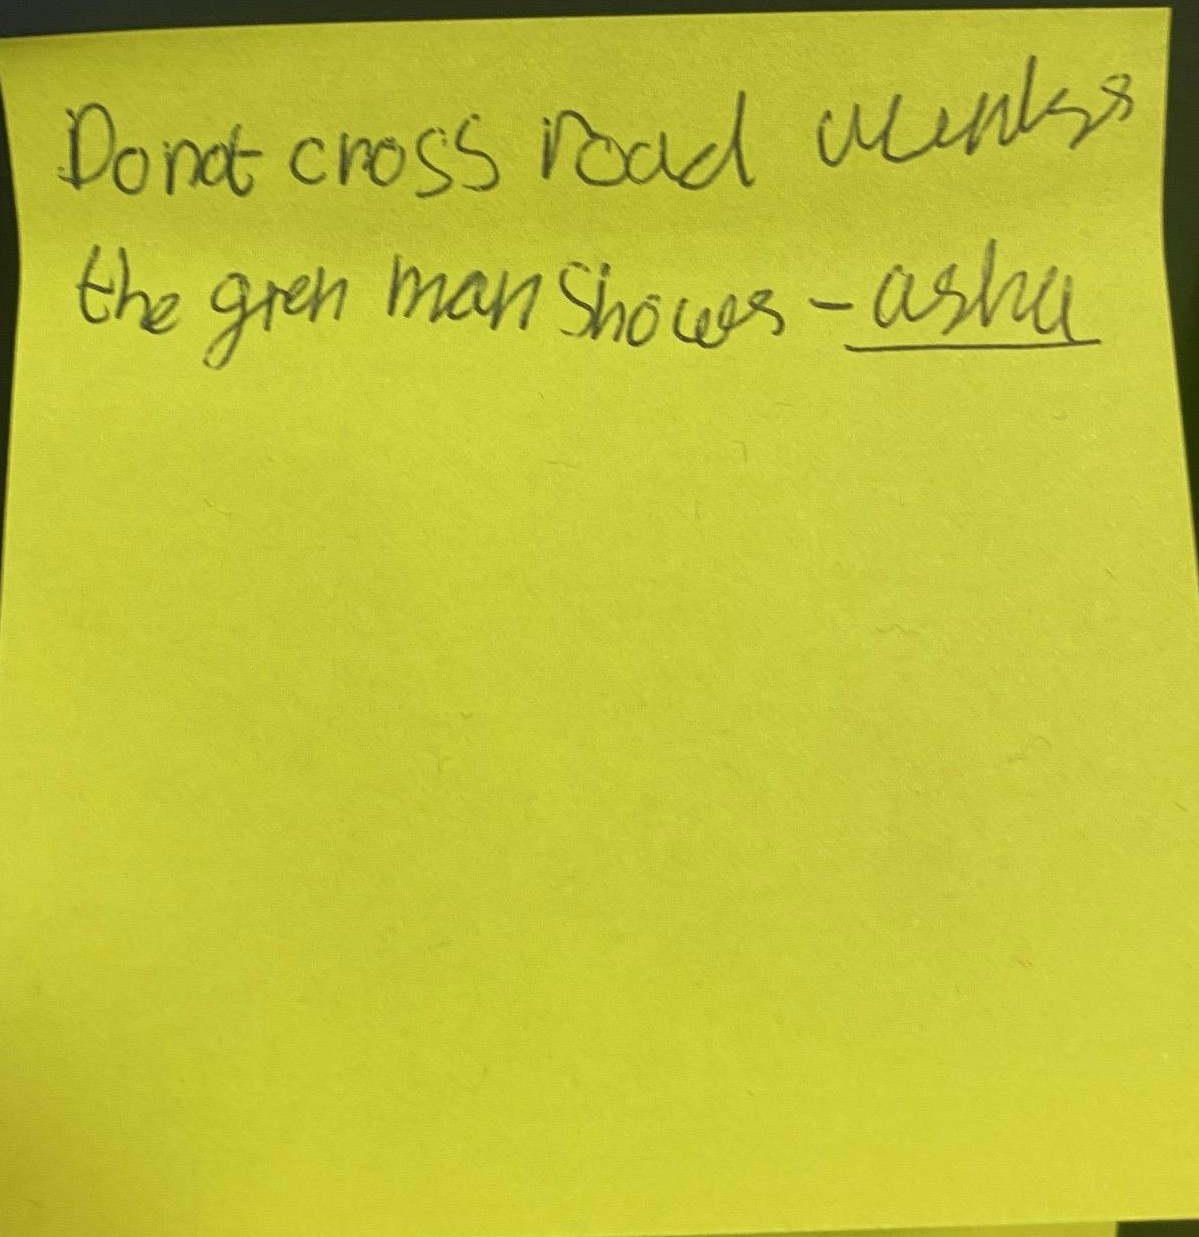 Do not cross road
the gren man Showes - asha